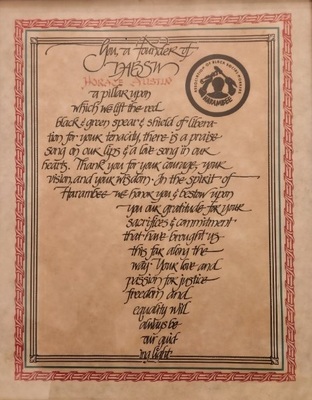 You, a founder of
NABSW
HORACE AUSTIN
a pillar upon
which we lift the red
black & green spear & shield of libera
tion for your tenacity, there is a praise
song on our lips & a love song in our
hearts. Thank you for your courage, your
vision, and your wisdom. In the spirit of
Harambee we honor you & bestow upon
you our gratitude for your
sacrifices & commitment
that have brought us
this far along the
way. Your love and
passion for justice
freedom and
equality will
always be
our guid
ing light.
ASSOCIATION OF BLACK SOCIAL WORKERS
HARAMBEE